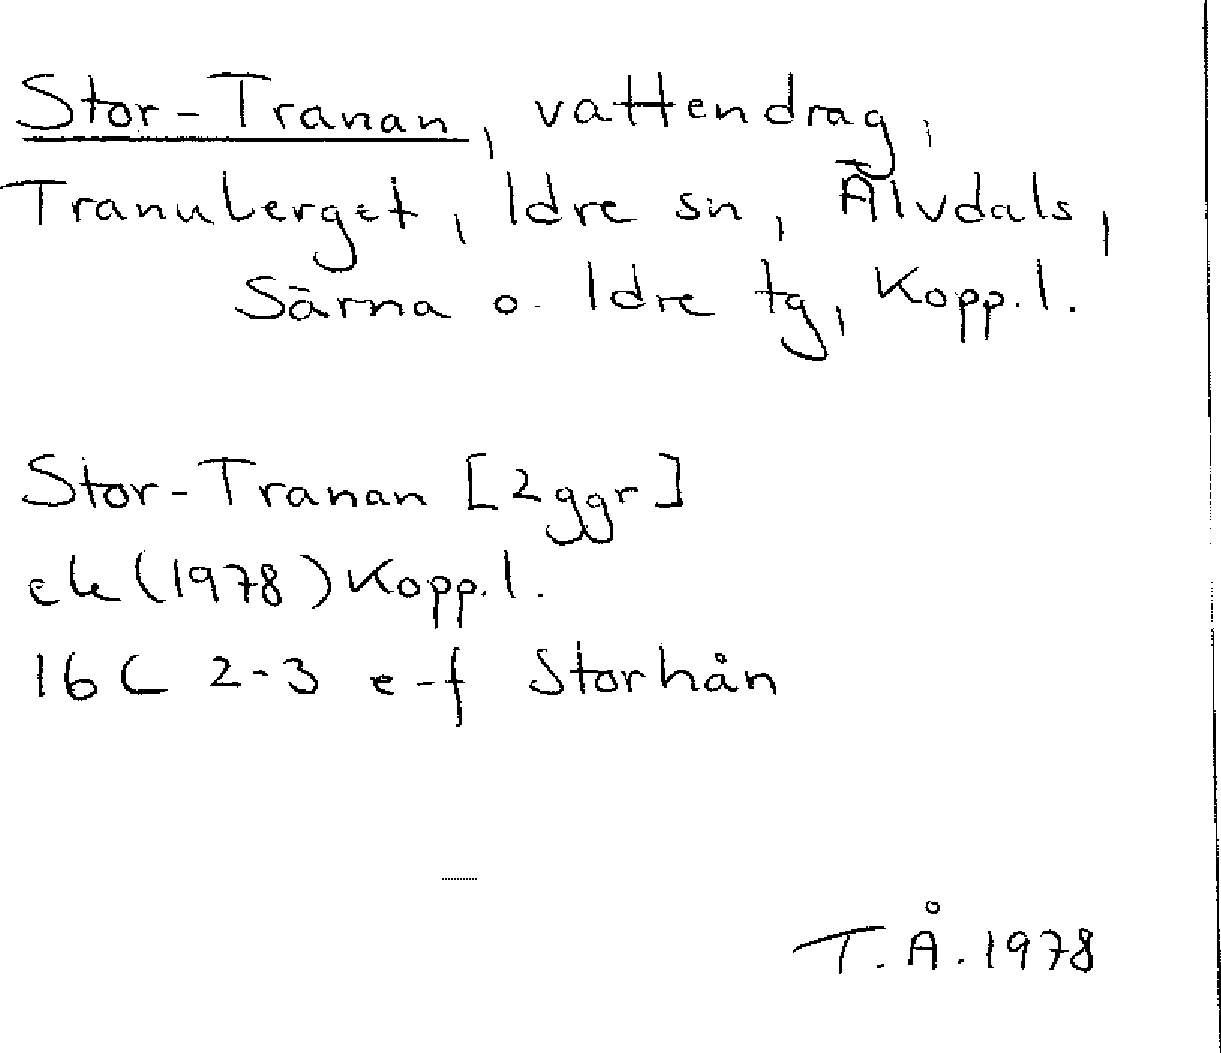 Stor-Tranan, vattendrag,
Tranuberget, Idre sn, Älvdals,
Särna o. Idre tg, Kopp.l.
Stor-Tranan [2ggr]
ek (1978) Kopp.l.
16C 2-3 e-f Storhån
T.Å.1978